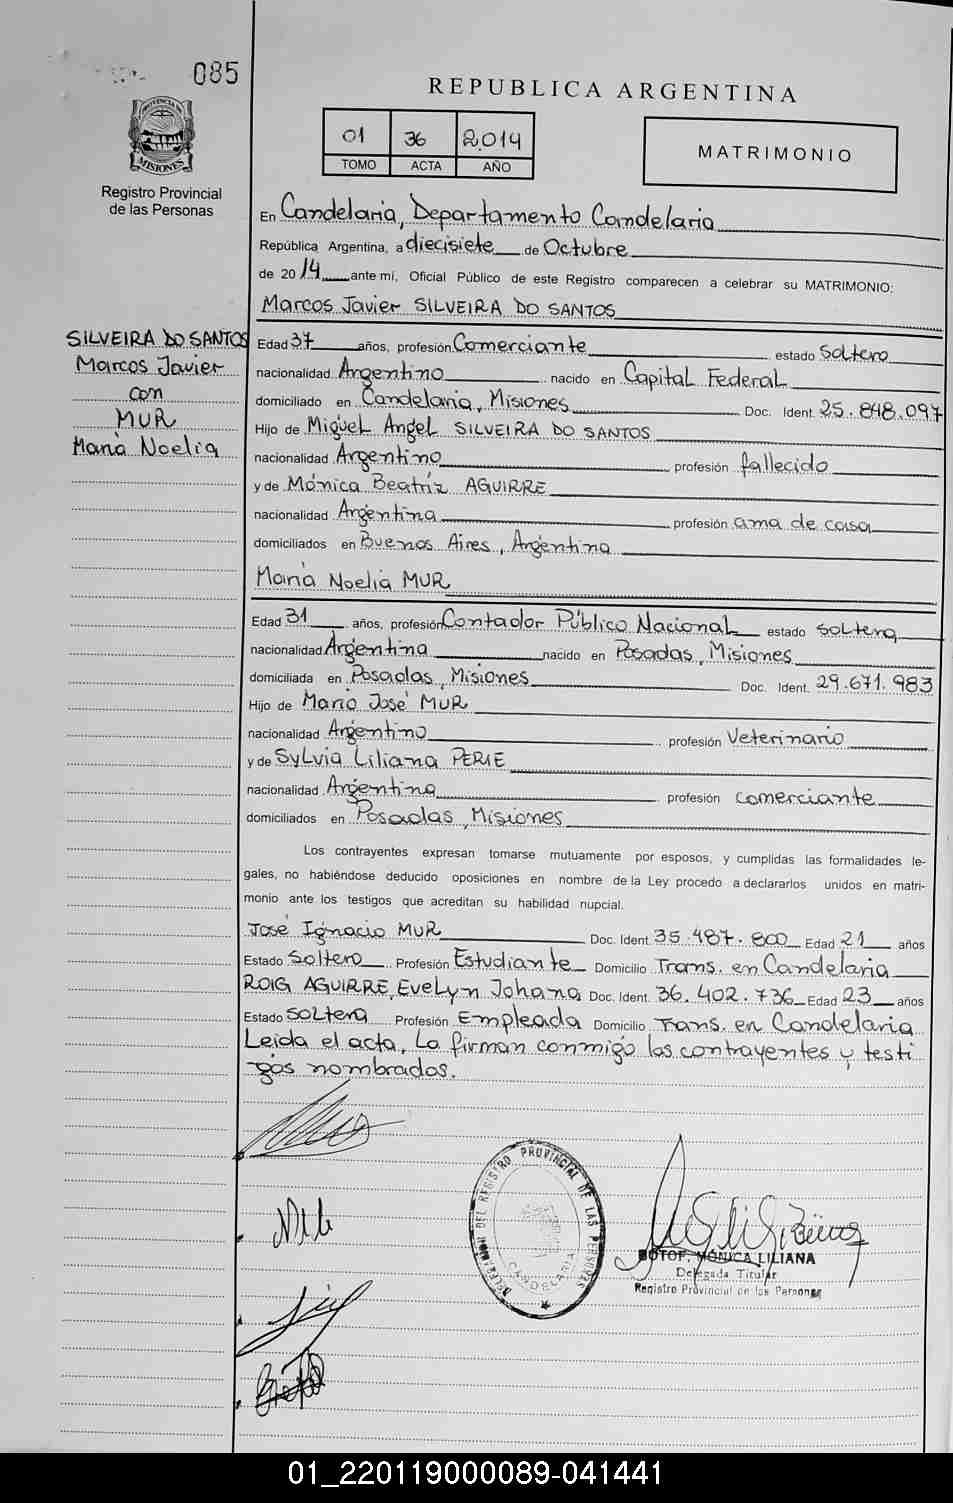 085
PROVINCIA DE
MISIONES
Registro Provincial
de las Personas
REPUBLICA ARGENTINA
01 36 2.014
TOMO ACTA AÑO
MATRIMONIO
En Candelaria, Departamento Candelaria
República Argentina, a diecisiete de Octubre
de 2014 ante mí, Oficial Público de este Registro comparecen a celebrar su MATRIMONIO:
Marcos Javier SILVEIRA DO SANTOS
SILVEIRA DO SANTOS
Marcos Javier
con
MUR
María Noelia
Edad 37 años, profesión Comerciante estado soltero
nacionalidad Argentino nacido en Capital Federal
domiciliado en Candelaria, Misiones Doc. Ident. 25.848.097
Hijo de Miguel Angel SILVEIRA DO SANTOS
nacionalidad Argentino profesión fallecido
y de Mónica Beatríz AGUIRRE
nacionalidad Argentina profesión ama de casa
domiciliados en Buenos Aires, Argentina
María Noelia MUR
Edad 31 años, profesión Contador Público Nacional estado soltera
nacionalidad Argentina nacido en Posadas, Misiones
domiciliada en Posadas, Misiones Doc. Ident. 29.671.983
Hijo de Mario José MUR
nacionalidad Argentino profesión Veterinario
y de Sylvia Liliana PERIE
nacionalidad Argentina profesión comerciante
domiciliados en Posadas, Misiones
Los contrayentes expresan tomarse mutuamente por esposos, y cumplidas las formalidades le-
gales, no habiéndose deducido oposiciones en nombre de la Ley procedo a declararlos unidos en matri-
monio ante los testigos que acreditan su habilidad nupcial.
José Ignacio MUR Doc. Ident. 35.487.800 Edad 21 años
Estado Soltero Profesión Estudiante Domicilio Trans. en Candelaria
ROIG AGUIRRE, Evelyn Johana Doc. Ident. 36.402.736 Edad 23 años
Estado soltera Profesión Empleada Domicilio Trans. en Candelaria
Leida el acta, la firman conmigo los contrayentes y testi
gos nombrados.
DELEGACION DEL REGISTRO PROVINCIAL DE LAS PERSONAS
CANDELARIA
BOTOF, MÓNICA LILIANA
Delegada Titular
Registro Provincial de las Personas
01_220119000089-041441